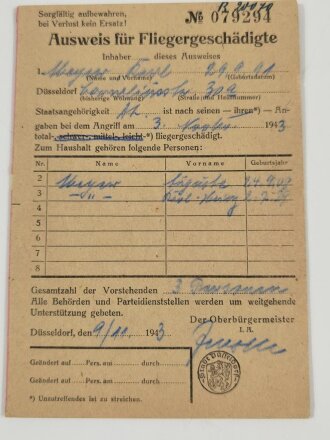 Sorgfältig aufbewahren,
bei Verlust kein Ersatz!
№ 079294
Ausweis für Fliegergeschädigte
Inhaber dieses Ausweises
1. Meyer
(Name und Vorname) (Geburtsdatum)
Düsseldorf
(bisherige Wohnung) (Straße und Hausnummer)
Staatsangehörigkeit ist nach seinen – ihren*) – An-
gaben bei dem Angriff am 3. 1943
total-, schwer-, mittel-, leicht-*) fliegergeschädigt.
Zum Haushalt gehören folgende Personen:
Nr. Name Vorname Geburtsjahr
2 Meyer Auguste
3 -"-
4
5
6
7
8
Gesamtzahl der Vorstehenden 3 Personen
Alle Behörden und Parteidienststellen werden um weitgehende
Unterstützung gebeten.
Düsseldorf, den 9/11 1943
Der Oberbürgermeister
I. A.
Geändert auf Pers. am durch
Geändert auf Pers. am durch
*) Unzutreffendes ist zu streichen.